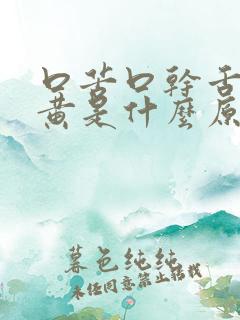 口苦口幹舌
黄是什麼原
暮色纯纯
未经同意禁止转载